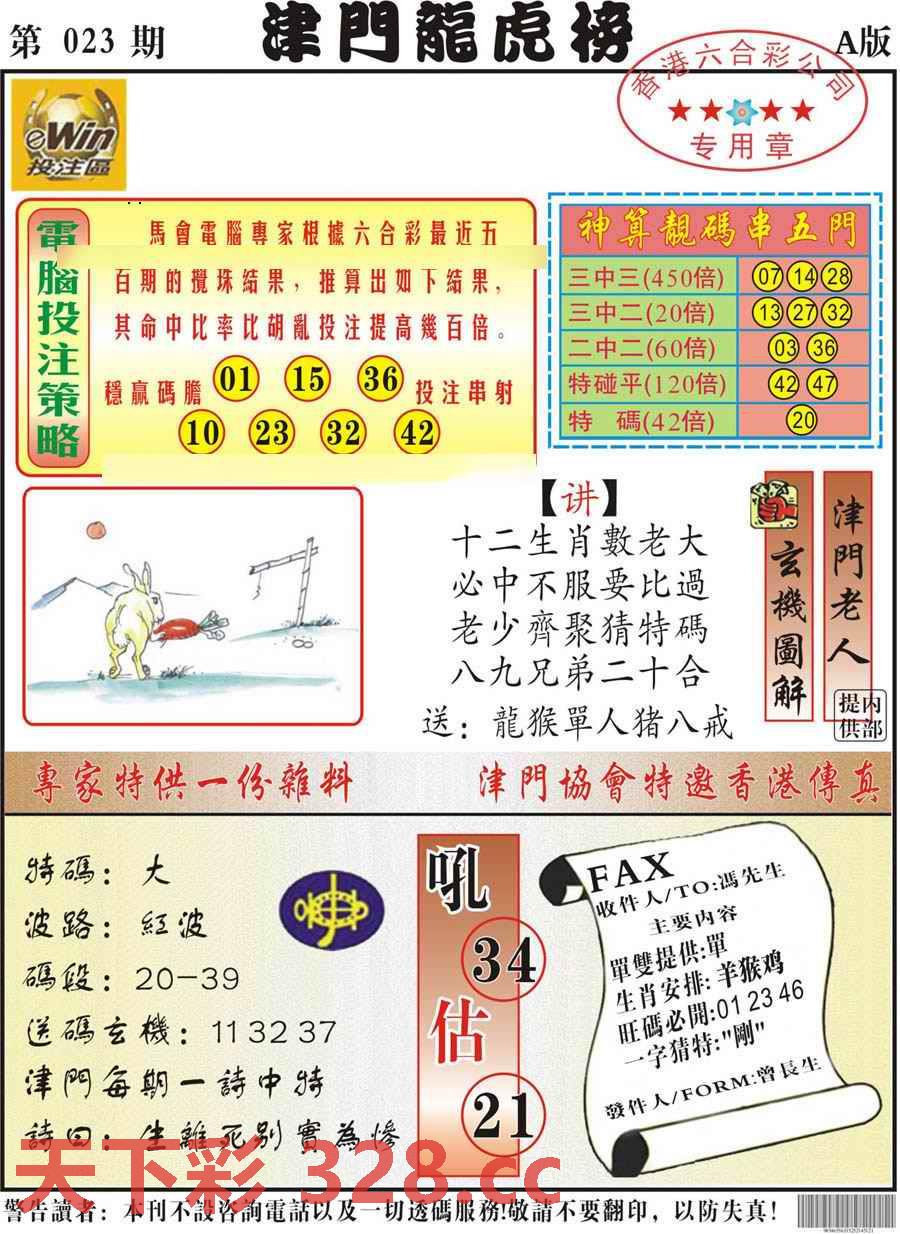 第 023 期
津門龍虎榜
A版
香港六合彩公司
专用章
eWin
投注區
電腦投注策略
馬會電腦專家根據六合彩最近五
百期的攪珠結果，推算出如下結果，
其命中比率比胡亂投注提高幾百倍。
穩贏碼膽 01 15 36 投注串射
10 23 32 42
神算靚碼串五門
三中三(450倍) 07 14 28
三中二(20倍) 13 27 32
二中二(60倍) 03 36
特碰平(120倍) 42 47
特 碼(42倍) 20
【讲】
十二生肖數老大
必中不服要比過
老少齊聚猜特碼
八九兄弟二十合
送：龍猴單人猪八戒
玄機圖解
津門老人
内部提供
專家特供一份雜料
津門協會特邀香港傳真
特碼：大
波路：紅波
碼段：20-39
送碼玄機：11 32 37
津門每期一詩中特
詩曰：生離死别實為慘
吼
34
估
21
FAX
收件人/TO:馮先生
主要内容
單雙提供:單
生肖安排:羊猴鸡
旺碼必開:01 23 46
一字猜特:"剛"
發件人/FORM:曾長生
天下彩 328.cc
警告讀者：本刊不設咨詢電話以及一切透碼服務!敬請不要翻印，以防失真!